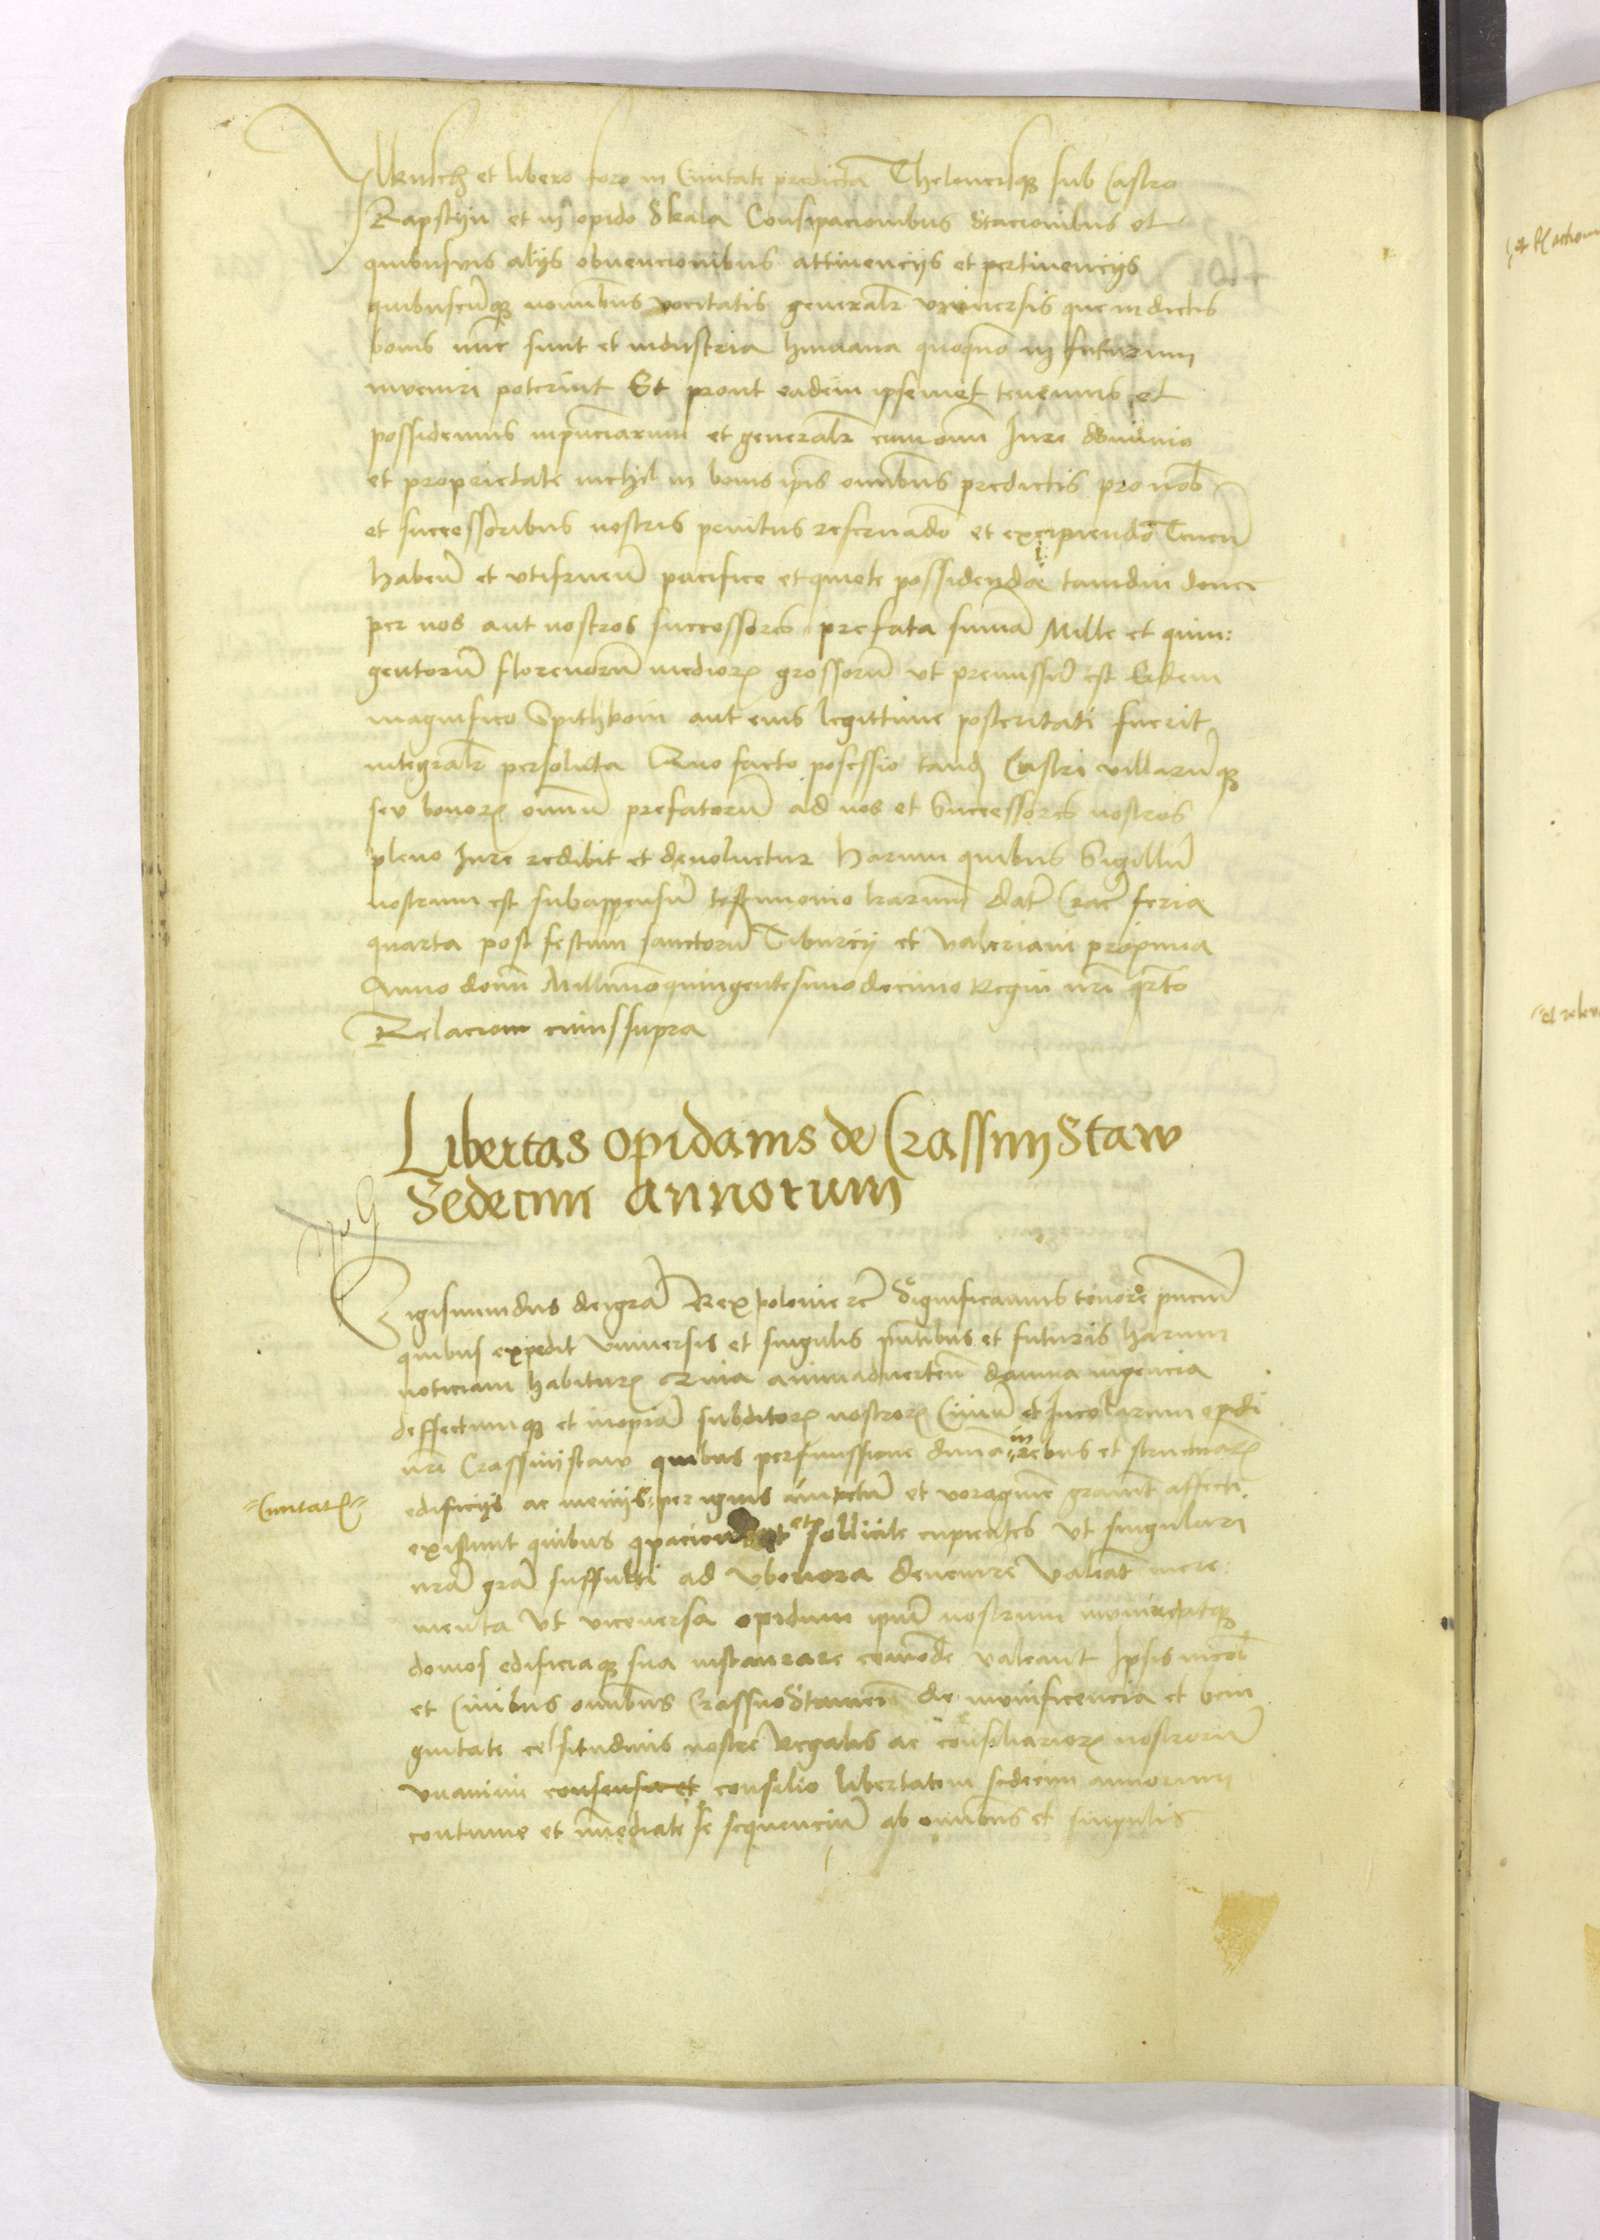 Ilkusch et libero foro in Civitate predicta Theloneisque sub Castro
Rapschyn et in opido Skala Consipacionibus stacionibus et
quibusvis alijs obvencionibus attinencijs et pertinencijs
quibuscūque nomībus vocitatis generalr universis que in dictis
bonis nūc sunt et industria humana quoqūo in futurum
inveniri poterint Et prout eadem ipsemet tenemus et
possidemus inpnciarum et generalr cum omni Jure dominio
et proprietate nichil in bonis ip̄is omībus predictis pro nob
et successoribus nostris penitus reservādo et excipiendo Tenēn
habeñ et utifrueñ pacifice et quiete possidenda tamdiu donec
per nos aut nostros successores prefata sum̄a Mille et quin:
gentorū florenorū medior grossorū ut premissū est Eidem
magnifico Spithkoni aut eius legittime posteritati fuerit
integralr persoluta Quo facto posessio tandē Castri villarūque
seu bonor omniū prefatorū ad nos et Successores nostros
pleno Jure redibit et devoluetur Harum quibus Sigillū
nostrum est subappensū testimonio lrarum Dat Crac feria
quarta post festum sanctorū Tiburcij et Valeriani proxima
Anno domī Millimoquingentesimodecimo Regni nrī qrto
Relacione cuiussupra
Libertas opidanis de CrassnijStaw
Sedecim annorum
Sigismundus dei grā Rex Polonie rc Significamus tenore pñcium
quibus expedit Universis et singulis pñtibus et futuris harum
noticiam habitur Quia animadverteñ damna ingencia
deffectumque et inopiā subditor nostror Civiū et Incolarum opidi
nrī Crassnijstaw quibus permissione divina in rebus et structuar
=Civitatē=
edificijs ac menijs per ignis impetū et voraginē gravit affecti
existunt quibus et sollicite cupientes ut singulari
nrā grā suffulti ad uberiora devenire valeant incre:
menta ut viceversa opidum ipm̄ nostrum munireque
domos edificiaque sua instaurare comode valeant Ipsis incol
et Civibus omībus CrassnoStaviē de munificencia et beni
gnitate celsitudinis nostre Regalis ac consiliarior nostrorū
unanimi consensu et consilio libertatem sedecim annorum
continue et imediate se sequenciū ab omnibus et singulis